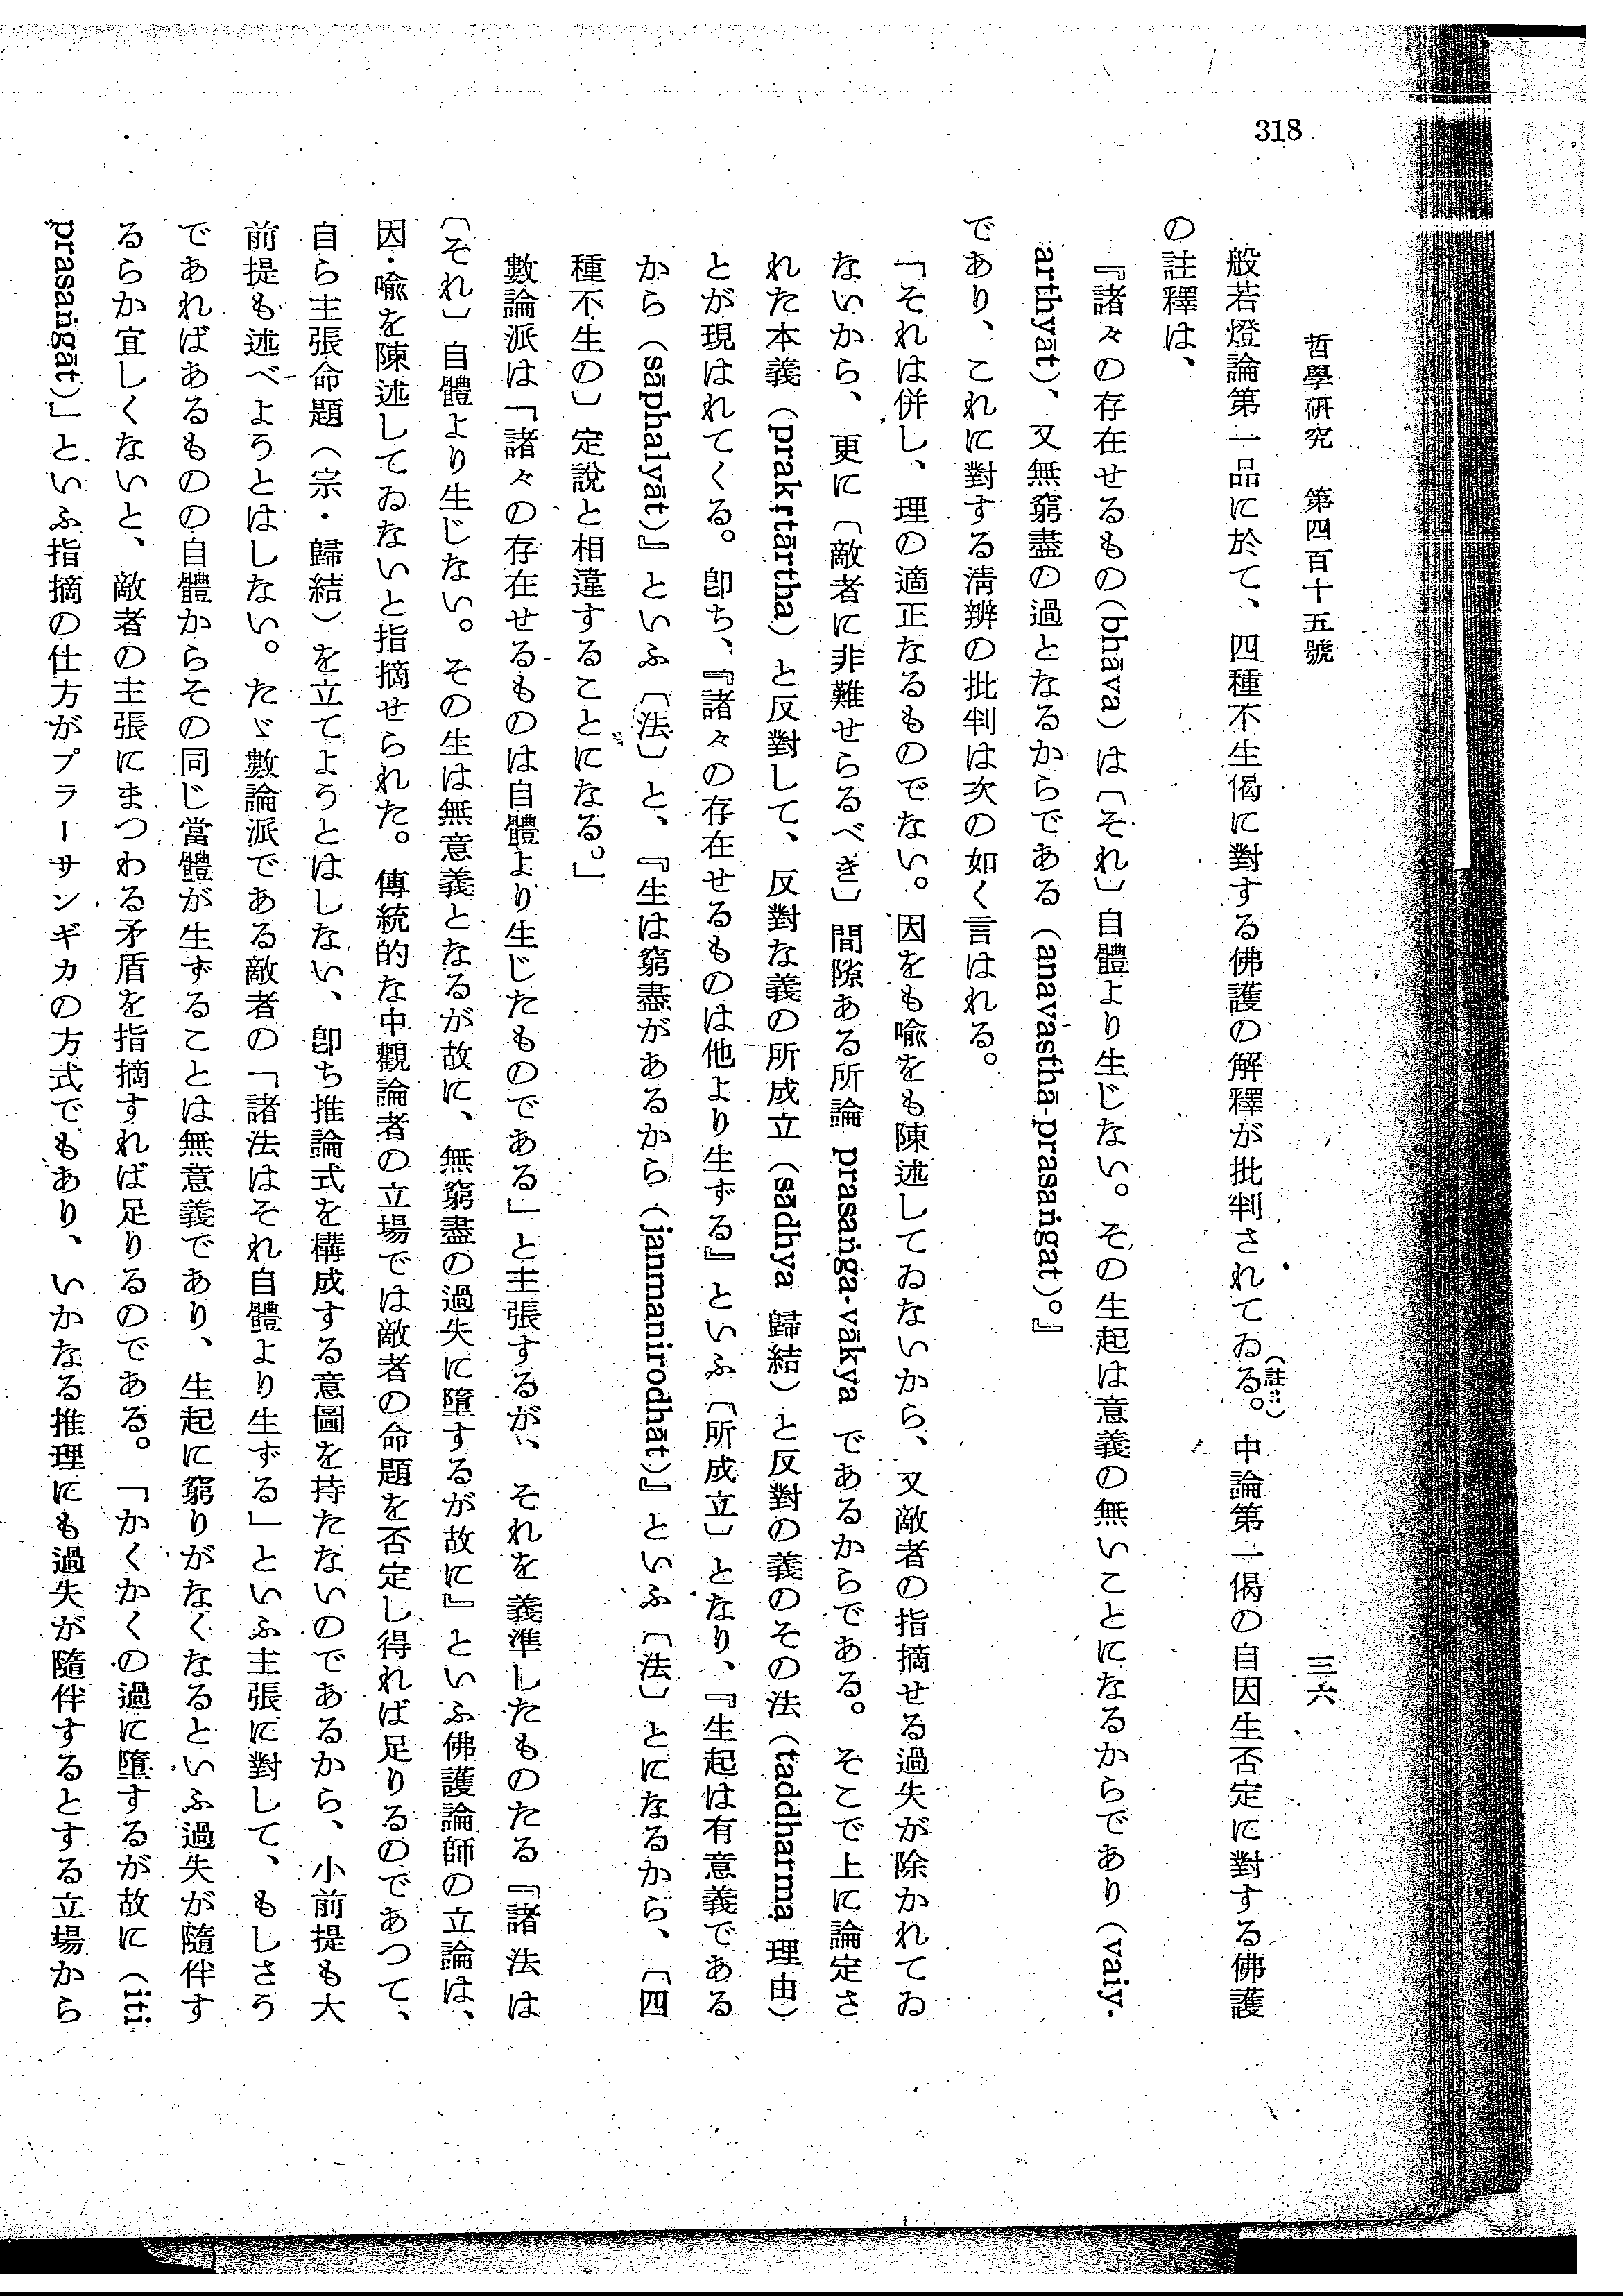 318
哲學研究　第四百十五號
三六
般若燈論第一品に於て、四種不生偈に對する佛護の解釋が批判されてゐる。中論第一偈の自因生否定に對する佛護
（註3）
の註釋は、
『諸々の存在せるもの(bhāva)は〔それ〕自體より生じない。その生起は意義の無いことになるからであり（vaiy-
arthyāt）、又無窮盡の過となるからである（anavasthā-prasaṅgat）。』
であり、これに對する淸辨の批判は次の如く言はれる。
「それは併し、理の適正なるものでない。因をも喩をも陳述してゐないから、又敵者の指摘せる過失が除かれてゐ
ないから、更に〔敵者に非難せらるべき〕間隙ある所論 prasaṅga-vākya であるからである。そこで上に論定さ
れた本義（prakṛtārtha）と反對して、反對な義の所成立（sādhya 歸結）と反對の義のその法（taddharma 理由）
とが現はれてくる。卽ち、『諸々の存在せるものは他より生ずる』といふ〔所成立〕となり、『生起は有意義である
から（sāphalyāt）』といふ〔法〕と、『生は窮盡があるから（janmanirodhāt）』といふ〔法〕とになるから、〔四
種不生の〕定說と相違することになる。」
數論派は「諸々の存在せるものは自體より生じたものである」と主張するが、それを義準したものたる『諸法は
〔それ〕自體より生じない。その生は無意義となるが故に、無窮盡の過失に墮するが故に』といふ佛護論師の立論は、
因・喩を陳述してゐないと指摘せられた。傳統的な中觀論者の立場では敵者の命題を否定し得れば足りるのであつて、
自ら主張命題（宗・歸結）を立てようとはしない、卽ち推論式を構成する意圖を持たないのであるから、小前提も大
前提も述べようとはしない。たゞ數論派である敵者の「諸法はそれ自體より生ずる」といふ主張に對して、もしさう
であればあるものの自體からその同じ當體が生ずることは無意義であり、生起に窮りがなくなるといふ過失が隨伴す
るらか宜しくないと、敵者の主張にまつわる矛盾を指摘すれば足りるのである。「かくかくの過に墮するが故に（iti
prasaṅgāt）」といふ指摘の仕方がプラーサンギカの方式でもあり、いかなる推理にも過失が隨伴するとする立場から